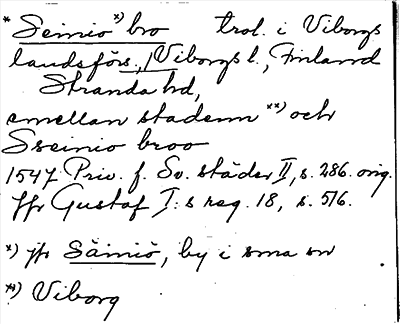 * Seiniö *) bro trol. i Viborgs
landsförs., Viborgs l., Finland
Stranda hd,
emellan stadenn **) och
Sseinio broo
1547 Priv. f. Sv. städer II, s. 286. orig.
Jfr Gustaf I:s reg. 18, s. 516.
*) jfr Säiniö, by i sma sn
**) Viborg